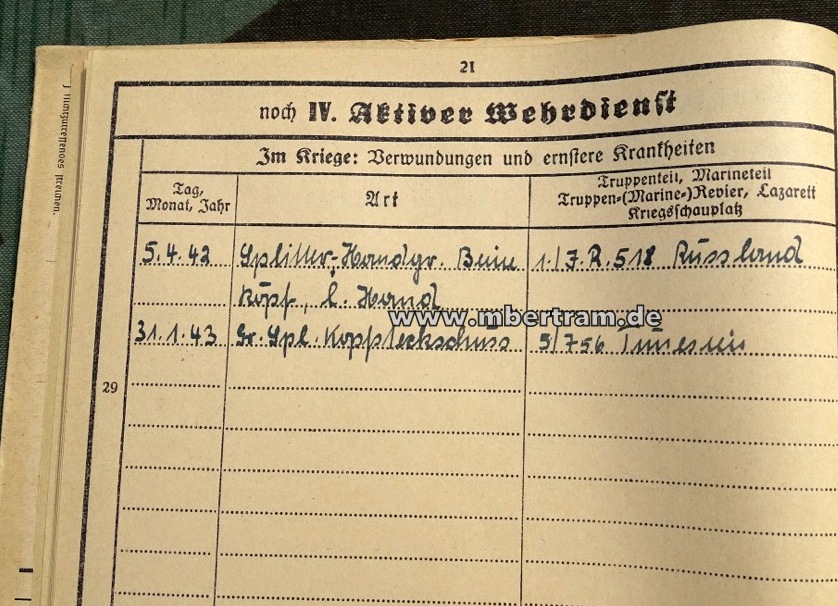 21
noch IV. Aktiver Wehrdienst
Im Kriege: Verwundungen und ernstere Krankheiten
Tag,
Monat, Jahr
Art
Truppenteil, Marineteil
Truppen-(Marine-)Revier, Lazarett
Kriegsschauplatz
5.4.42 Splitter-Handgr. Beine 1./J.R.518 Russland
Kopf, l. Hand
www.mbertram.de
31.1.43 Gr. Spl. Kopfsteckschuss 5/756 Tunesien
29
nichtzutreffendes streichen.